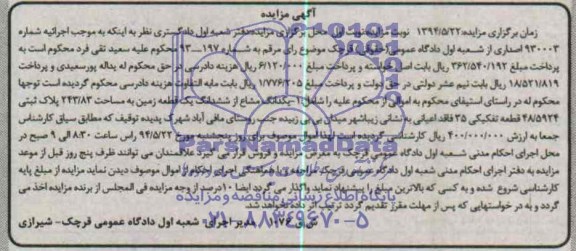 آگهی مزایده
زمان برگزاری مزایده:۱۳۹۴/۵/۲۲ نوبت مزایده:نوبت اول محل برگزاری مزایده:دفتر شعبه اول دادگستری نظر به اینکه به موجب اجرائیه شماره
۹۳۰۰۰۳ اصداری از شعبه اول دادگاه عمومی (حقوقی) قرچک موضوع رای مرقم به شماره ۱۹۷-۹۳ محکوم علیه سعید تقی فرد محکوم است به
پرداخت مبلغ ۳۶۲/۵۴۰/۱۹۲ ریال بابت اصل خواسته و پرداخت مبلغ ۶/۱۲۰/۰۰۰ ریال هزینه دادرسی در حق محکوم له یداله پورسعیدی و پرداخت
۱۸/۵۳۱/۸۱۹ ریال بابت نیم عشر دولتی در حق دولت و پرداخت مبلغ ۱/۷۷۶/۲۰۵ ریال بابت مابه التفاوت هزینه دادرسی محکوم گردیده است توجها
محکوم له در راستای استیفای محکوم به اموالی از محکوم علیه را شامل ۱-یکدانگ مشاع از ششدانگ یک قطعه زمین به مساحت ۲۴۳/۸۳ پلاک ثبتی
۴۸/۵۹۲۴ قطعه تفکیکی ۳۵ فاقد اعیانی به نشانی زیباشهر میدان بی بی زبیده جنب روستای مافی آباد شهرک پدیده توقیف که مطابق سیاق کارشناس
جمعا به ارزش ۴۰۰/۰۰۰/۰۰۰ ریال کارشناسی گردیده است لهذا اموال موصوف برای روز پنجشنبه مورخ ۹۴/۵/۲۲ راس ساعت ۸:۳۰ الی ۹ صبح در
محل اجرای احکام مدنی شعبه اول دادگاه عمومی قرچک به معرض مزایده و فروش قرار می گیرد علاقمندان می توانند ظرف پنج روز قبل از موعد
مزایده به دفتر اجرای احکام مدنی شعبه اول دادگاه عمومی قرچک مراجعه و با هماهنگی اجرای احکام از اموال موصوف دیدن نماید مزایده از مبلغ پایه
کارشناسی شروع شده و به کسی که بالاترین مبلغ را پیشنهاد نماید واگذار می گردد ایضا ۱۰درصد از وجه مزایده فی المجلس از برنده مزایده اخذ می
گردد و به در خواستهایی که پس از مهلت مقرر تقدیم گردد ترتیب اثر داده نخواهد شد.
مدیر اجرای شعبه اول دادگاه عمومی قرچک- شیرازی
ParsNamadData
پایگاه اطلاع رسانی مناقصه و مزایده
۰۲۱-۸۸۳۴۹۶۷۰-۵